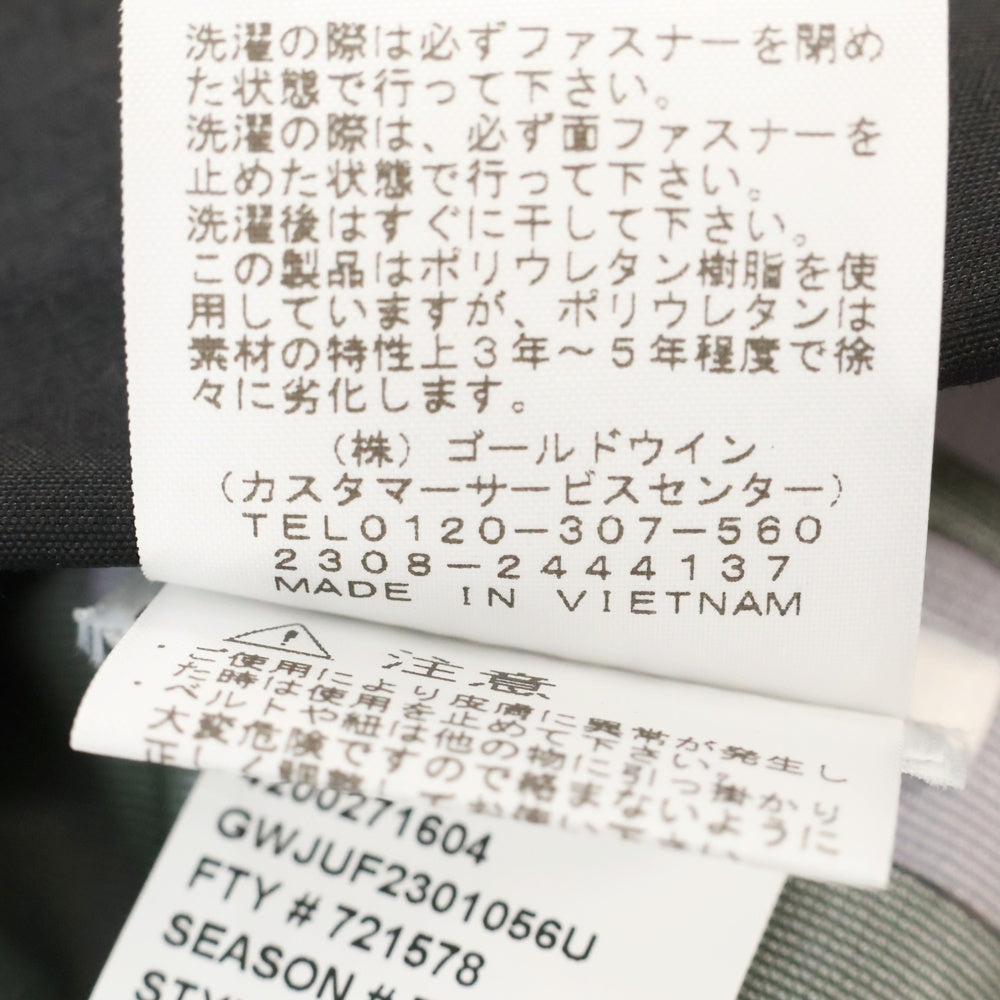 洗濯の際は必ずファスナーを閉め
た状態で行って下さい。
洗濯の際は、必ず面ファスナーを
止めた状態で行って下さい。
洗濯後はすぐに干して下さい。
この製品はポリウレタン樹脂を使
用していますが、ポリウレタンは
素材の特性上3年～5年程度で徐
々に劣化します。
(株) ゴールドウイン
(カスタマーサービスセンター)
TEL0120-307-560
2308-2444137
MADE IN VIETNAM
注意
・ご使用により皮膚に異常が発生し
た時は使用を止めて下さい。
・ベルトや紐は他の物に引っ掛かり
大変危険ですので絡まないように
正しく調整してお使い下さい。
4200271604
GWJUF2301056U
FTY # 721578
SEASON #